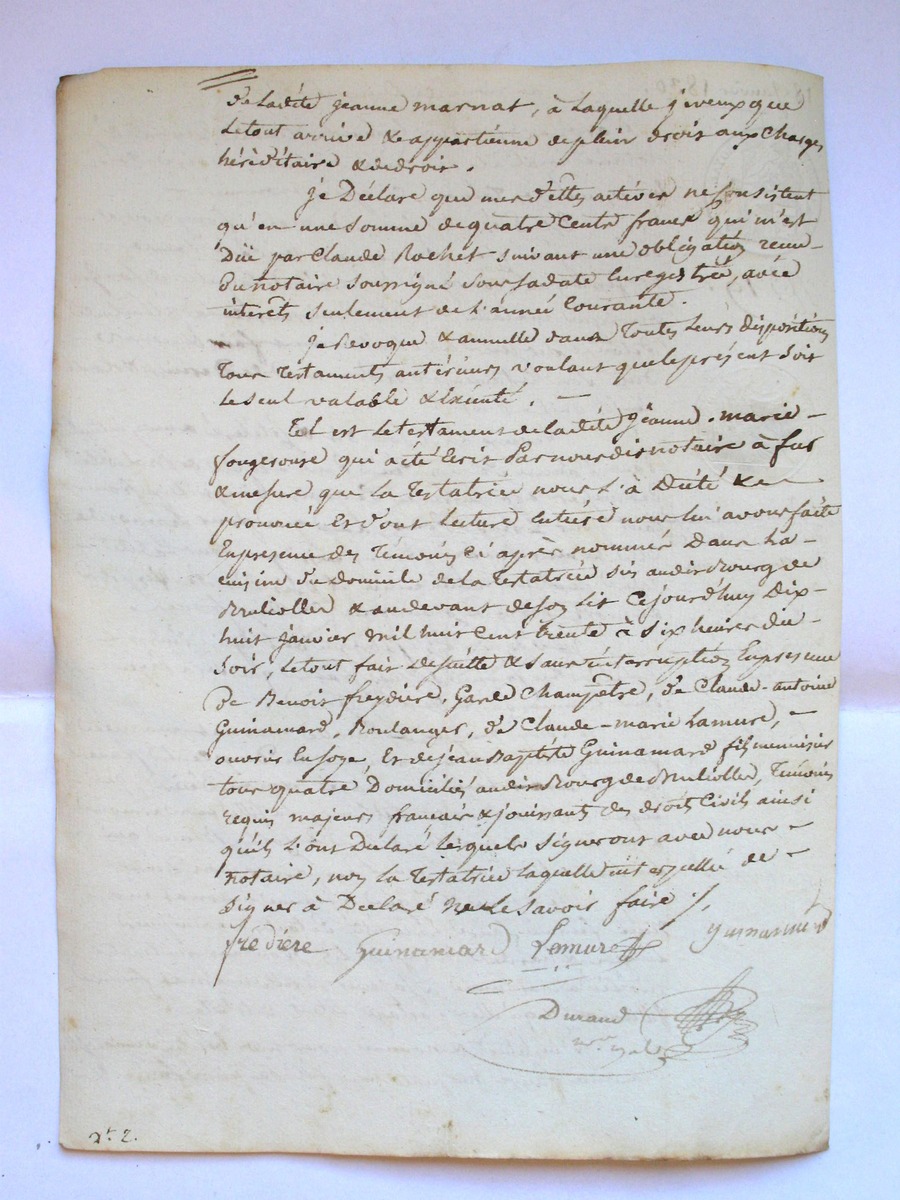 de ladite jeanne marnat, à laquelle je veux que
le tout arrive & appartienne de plein droit aux charges
héréditaire & de droit.
je Déclare que mes dettes actives ne Consistent
qu'en une somme de quatre Cents francs qui m'est
Düe par Claude Rochet suivant une obligation recue
du notaire soussigné sous sa date Enregistrée, avec
intérêts seulement de l'année Courante.
je Revoque & annulle dans Toutes leurs dispositions
Tous Testaments antérieurs voulant que le présent soit
le seul valable & Exécuté. —
Tel est le testament de la dite jéanne-marie
fougerouse qui a été Ecrit Par nous dit notaire à fur
& mesure que la Testatrice nous l'à Dicté &
prononcé Et dont lecture entière nous lui avons faite
En présence des Témoins ci après nommés Dans la
cuisine du domicile de la Testatrice sis au dit Bourg de
Bruliolles & au devant de son lit Ce jourd'huy Dix-
huit janvier mil huit cent trente à six heures du
soir, le tout fait de suitte & sans interruption En présence
De Benoit freydière, Garde Champêtre, de Claude-antoine
Guinamard, Boulanger, de Claude-marie Lamure, —
ouvrier En soye, Et de jean Baptiste Guinamard fils menuisier
tous quatre Domiciliés au dit Bourg de Brulliolles, Témoins
requis majeurs francais & jouissant des droits Civils ainsi
qu'ils l'ont Declaré lesquels signeront avec nous —
notaire, non la Testatrice laquelle interpellée de —
signer à Declaré ne le savoir faire ./.
fredière Guinamard Lemure guinamard
Durand
nre Royal
Rt. 2.